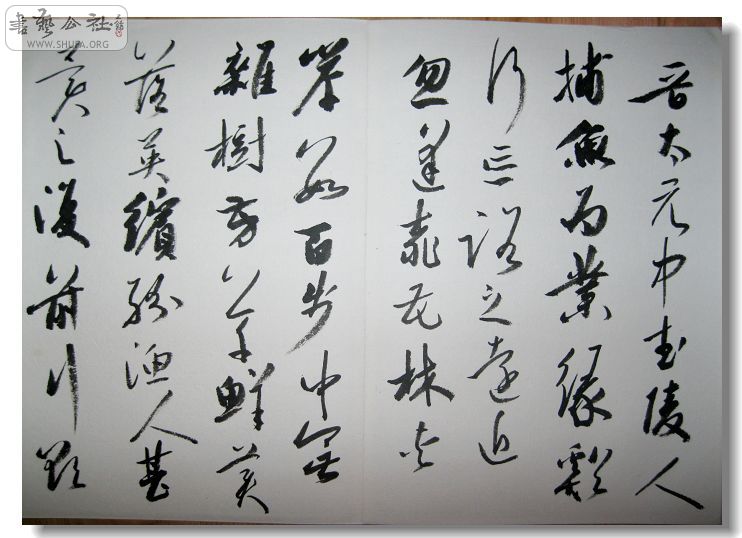 書藝公社
WWW.SHUFA.ORG
晋太元中武陵人
捕魚為業緣谿
行忘路之遠近
忽逢桃花林夾
岸數百步中無
雜樹芳草鮮美
落英繽紛漁人甚
異之復前行欲